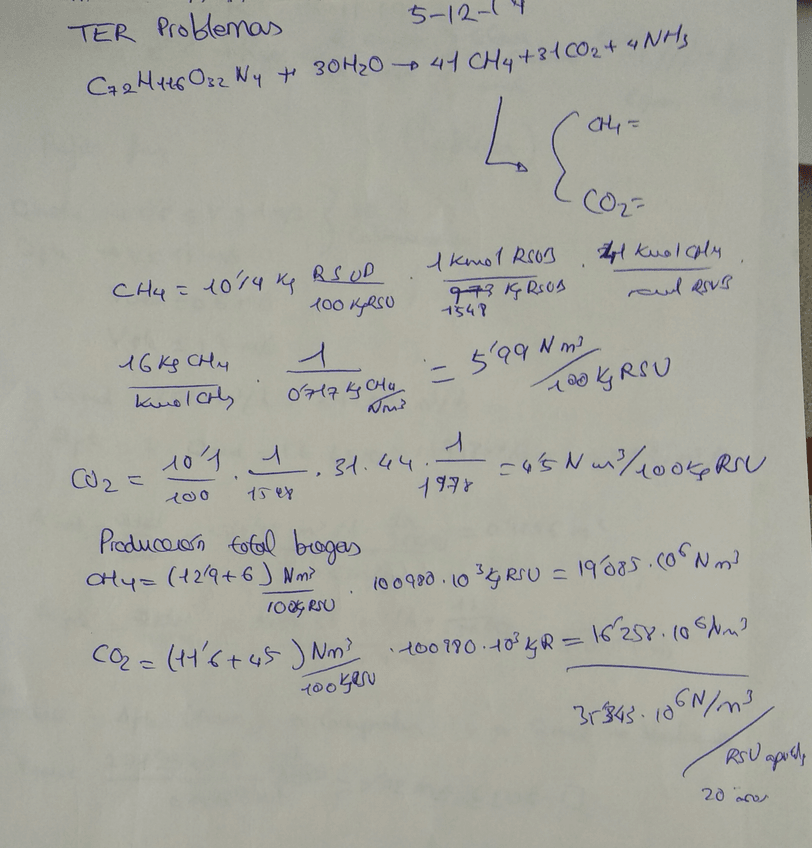 TER Problemas 5-12-14
C72H116O32N4 + 30H2O → 41 CH4 + 31CO2 + 4NH3
CH4 =
CO2 =
CH4 = 10'14 Kg RSUB / 100 KgRSU · 1 Kmol RSUB / 1548 Kg RSUB · 41 Kmol CH4 / Kmol RSUB ·
16 Kg CH4 / Kmol CH4 · 1 / 0'717 Kg CH4/Nm³ = 5'99 Nm³/100 Kg RSU
CO2 = 10'1/100 · 1/1548 · 31 · 44 · 1/1978 = 4'5 Nm³/100Kg RSU
Produccion total biogas
CH4 = (12'9+6) Nm³/100KgRSU · 100980·10³ Kg RSU = 19'085·10⁶ Nm³
CO2 = (11'6+45) Nm³/100KgRSU · 100980·10³ Kg R = 16'258·10⁶ Nm³
35'343·10⁶ N/m³
RSU
20